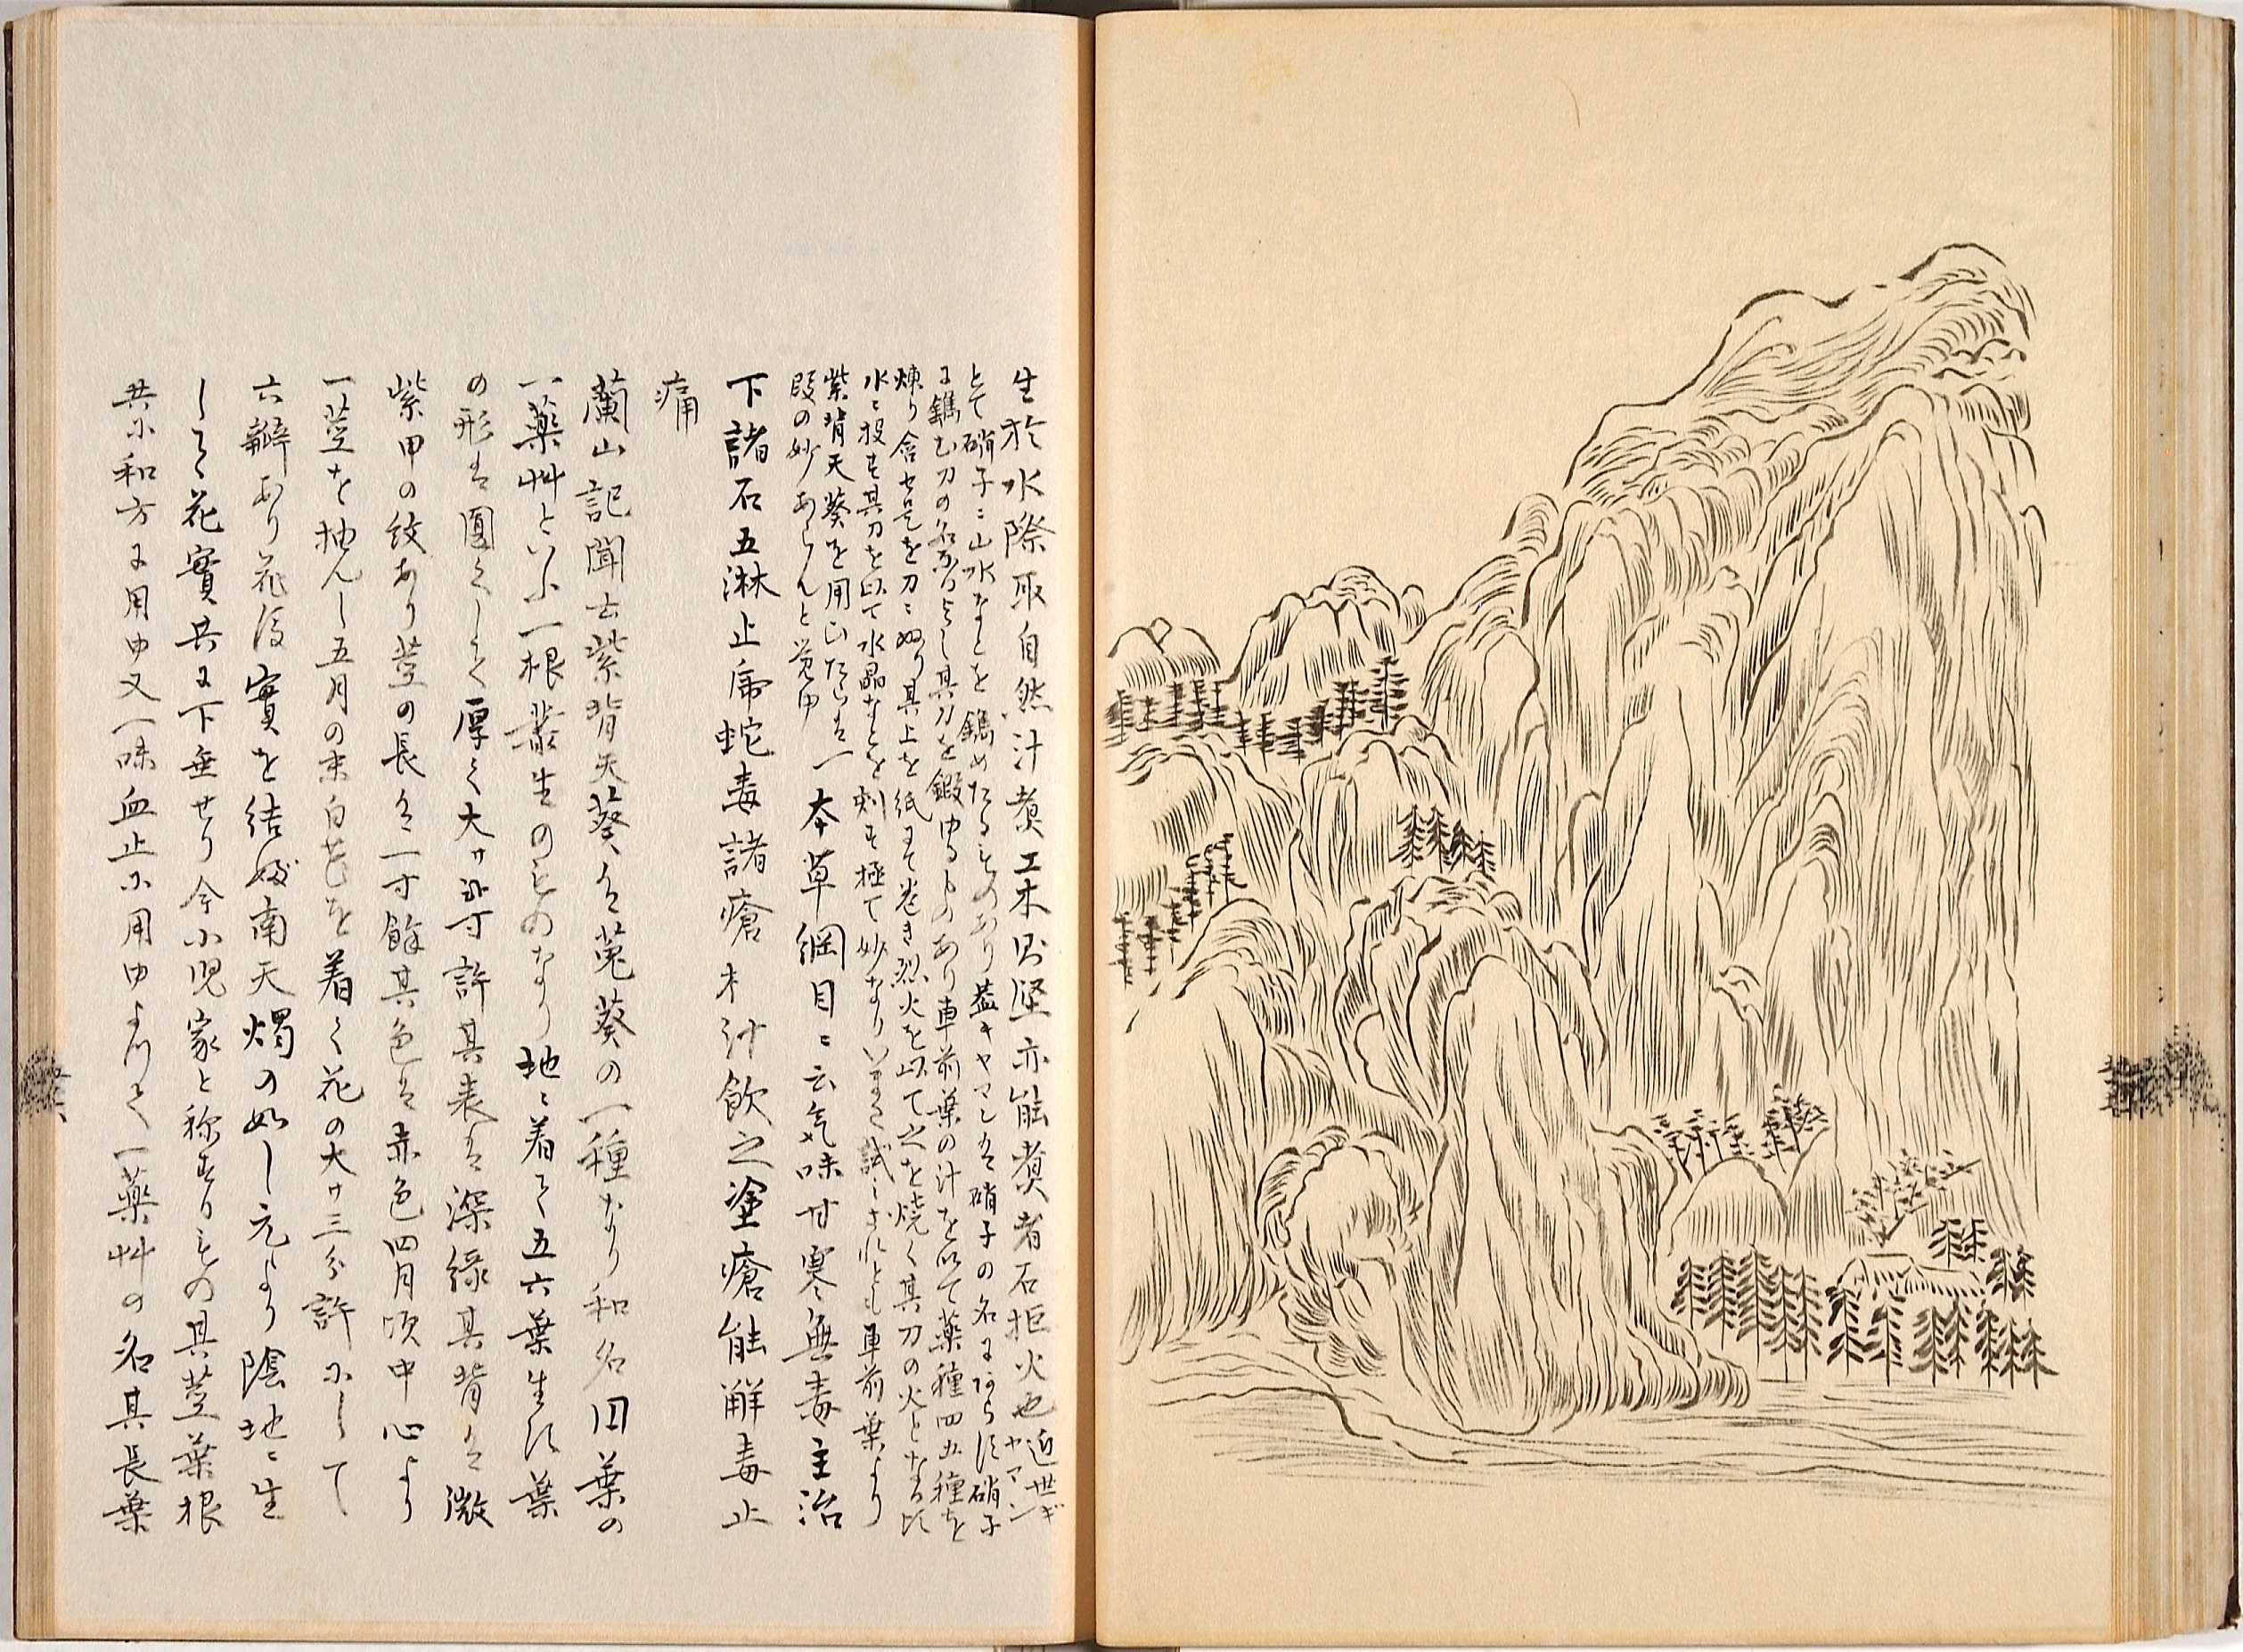 生於水際取自然汁煑工木則堅亦能煑者石拒火也近世ギヤマン
とて硝子ニ山水なとを鐫めたるものあり蓋ギヤマンは硝子の名にあらす硝子
に鐫む刀の名なるよし其刀を鍛ゆるものあり車前葉の汁を以て薬種四五種を
煉り合せ是を刀ニぬり其上を紙にて巻き烈火を以て之を焼く其刀の火となる比
水ニ投す其刀を以て水晶なとを刺す極て妙なりいまた試されとも車前葉より
紫背天葵を用ひたらは一
段の妙あらんと覚ゆ
本草綱目ニ云気味甘寒無毒主治
下諸石五淋止虎蛇毒諸瘡木汁飲之塗瘡能解毒止
痛
蘭山記聞云紫背天葵は菟葵の一種なり和名田葉の
一薬艸といふ一根叢生のものなり地ニ着て五六葉生す葉
の形は圓くして厚く大サ寸許其表は深緑其背は微
紫甲の紋あり莖の長は一寸餘其色は赤色四月頃中心より
一莖を抽んし五月の末白花を着く花の大サ三分許にして
六瓣あり花後實を結ふ南天燭の如し元より陰地ニ生
して花實共に下垂せり今小児家と称するもの其莖葉根
共に和方に用ゆ又一味血止に用ゆよつて一薬艸の名其長葉